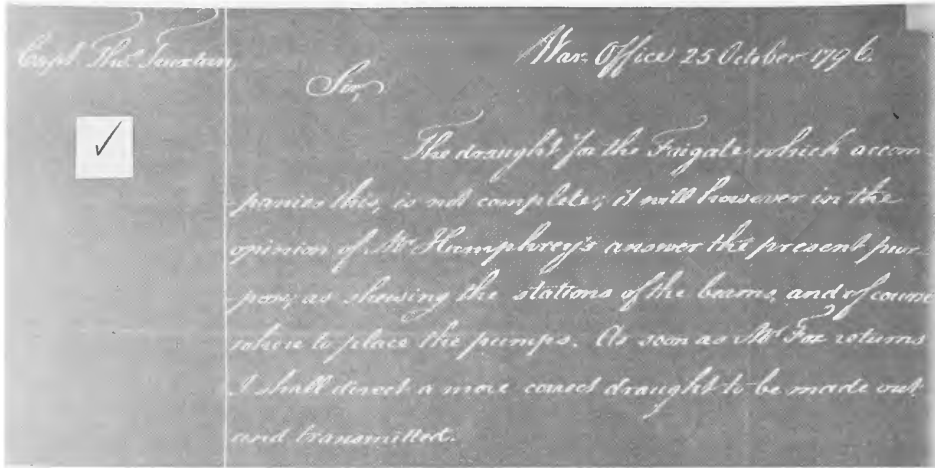 Capt. Tho.s Truxtun,
War Office 25 October 1796.
Sir,
The draught for the Frigate which accom-
panies this, is not complete; it will however in the
opinion of Mr Humphrey's answer the present pur-
pose, as shewing the stations of the beams, and of course
where to place the pumps. As soon as Mr Fox returns
I shall direct a more correct draught to be made out
and transmitted.